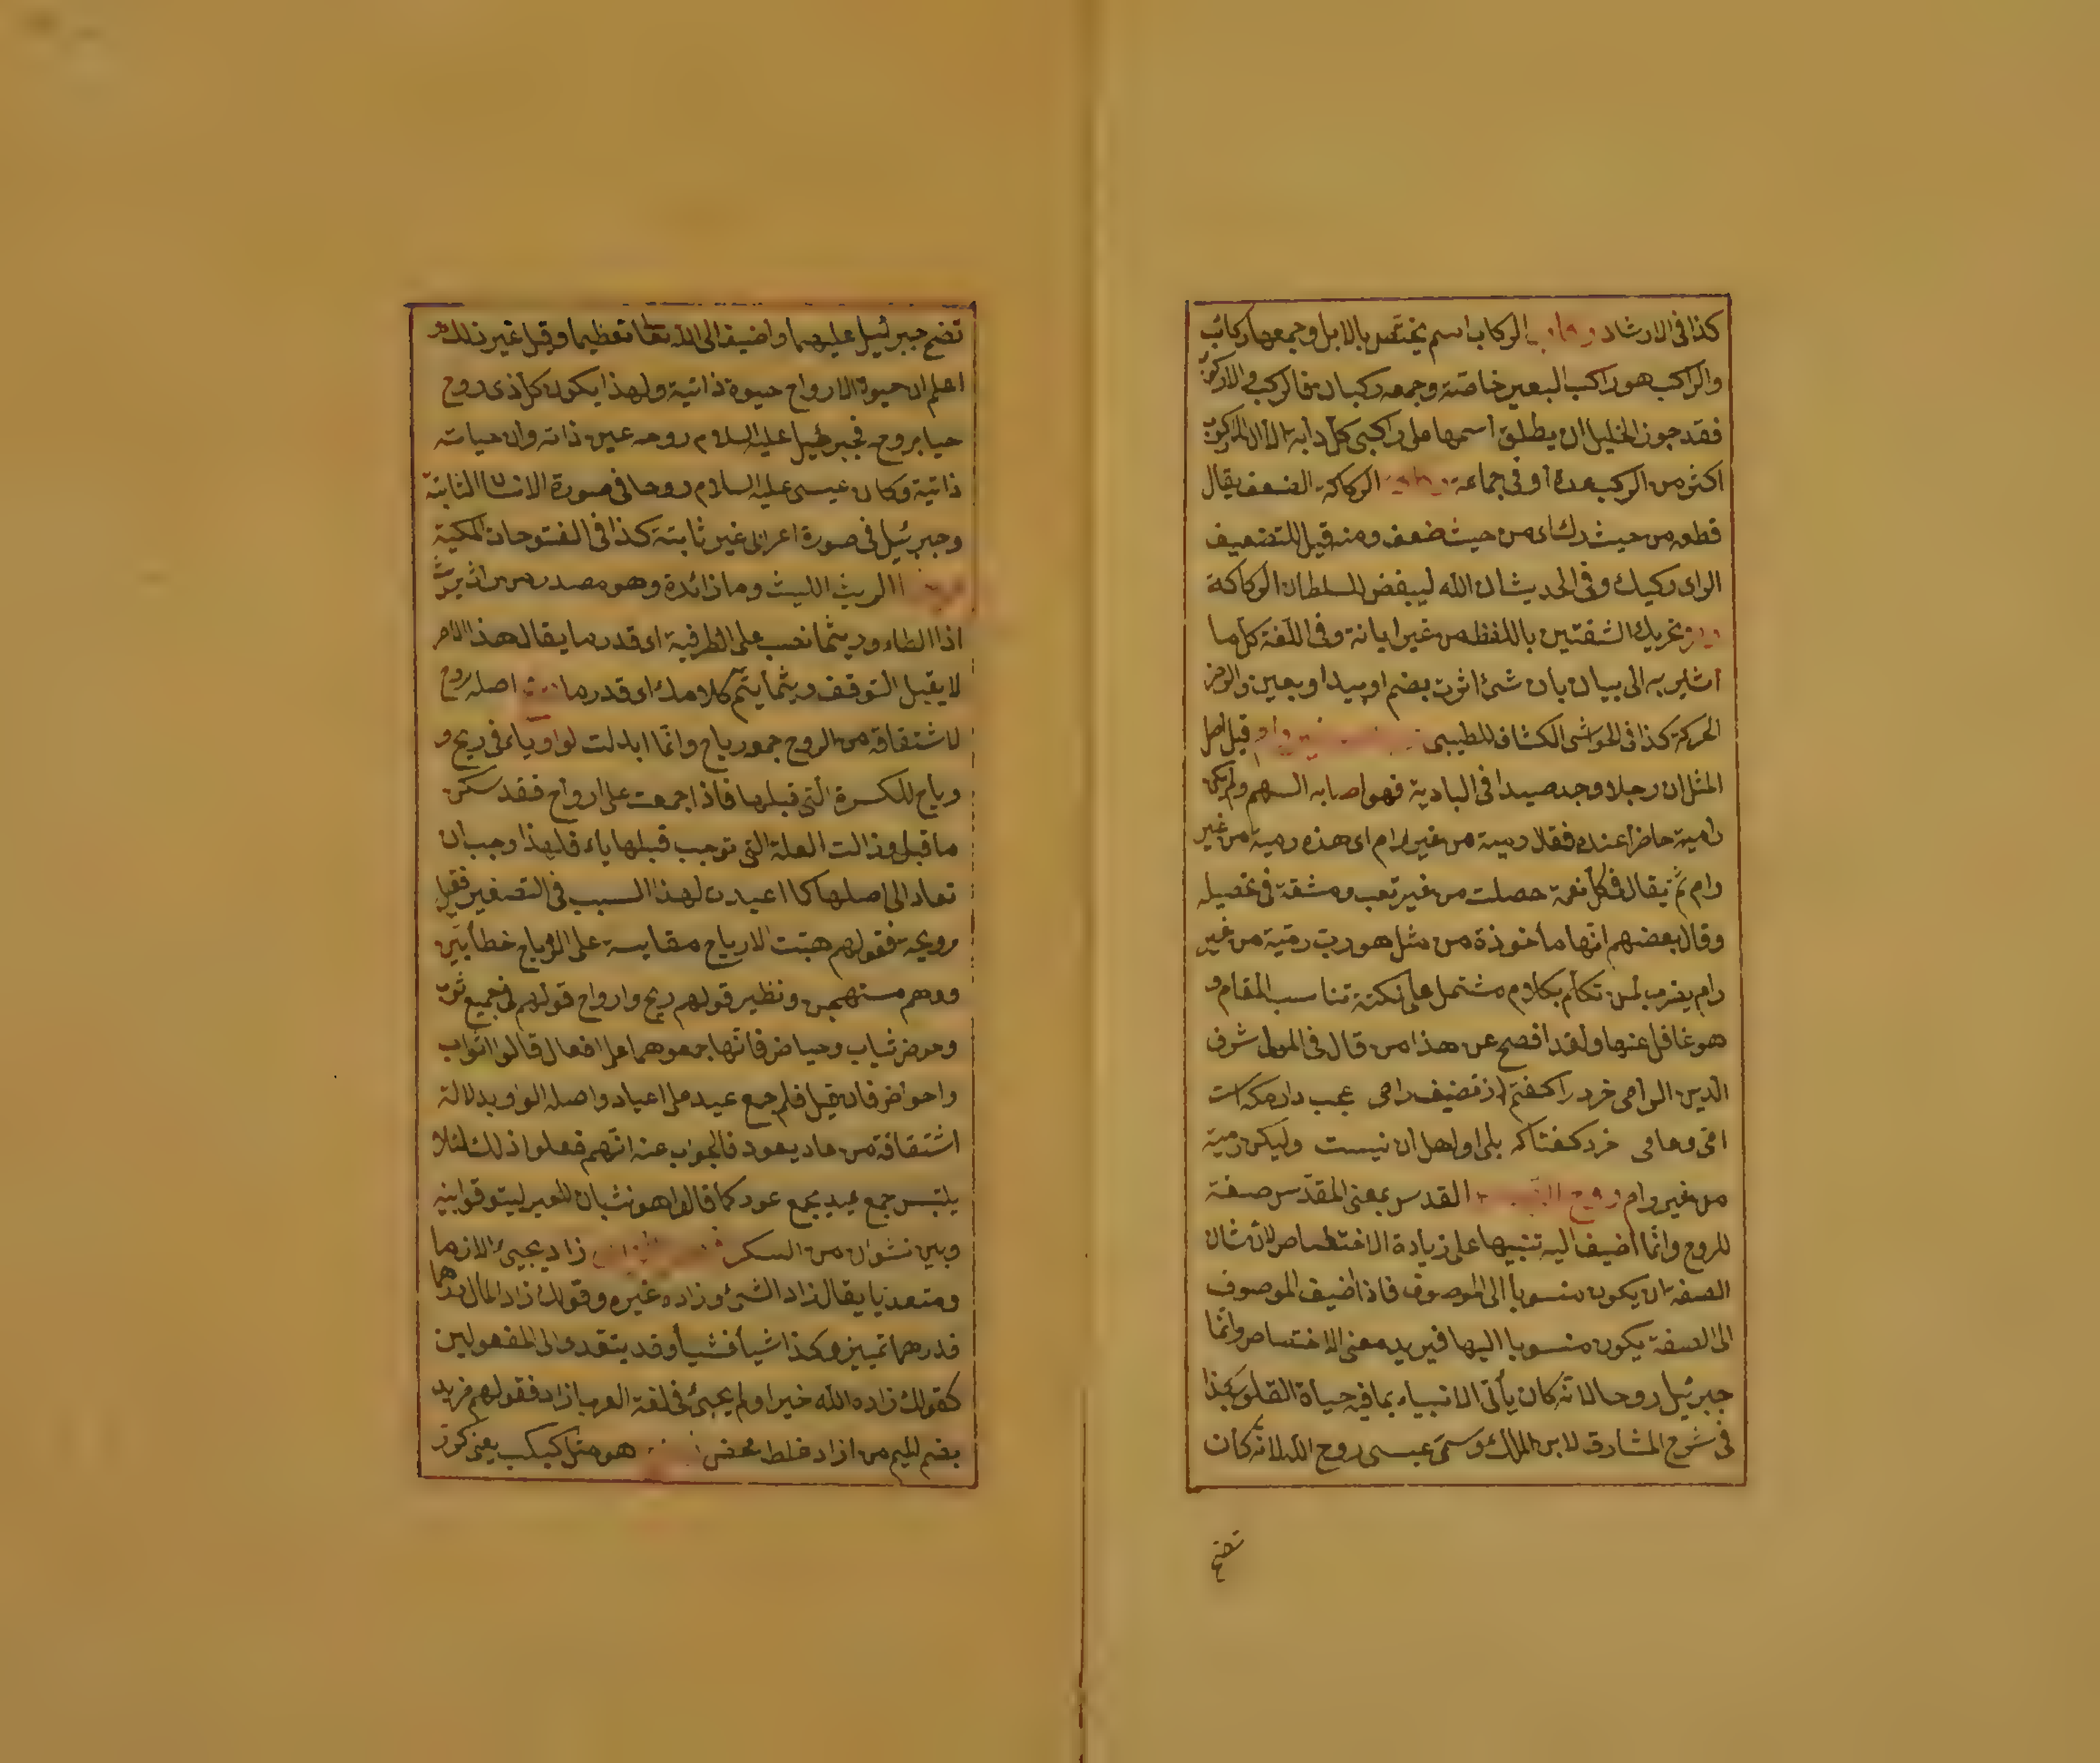 كذا فى الارشاد ركاب الركاب اسم يختص بالابل وجمعها ركائب
والراكب هو راكب البعير خاصة وجمعه ركبان فالركب والاركوب
فقد جوز الخليل ان يطلق اسمها على راكبى كل دابة الا ان الاركوب
اكثر من الركب عدة أو فى جماعة الركاكة الضعف يقال
قطعه من حيث رك اى من حيث ضعف ومنه قيل للضعيف
الراى ركيك وفى الحديث ان الله ليبغض السلطان الركاكة
تحريك الشفتين باللفظ من غير ابانة وفى اللغة كل ما
اشير به الى بيان بان شئ اثرت بضم او بيد او بعين والرمز
الحركة كذا فى الحواشى الكشاف للطيبى وقيل اصل
المثل ان رجلا وجد صيدا فى البادية فهو اصابه السهم ولم يكن
رامية حاضرا عنده فقال رمية من غير رام اى هذه رمية من غير
رام ثم يقال فى كل نعمة حصلت من غير تعب ومشقة فى تحصيله
وقال بعضهم انها مأخوذة من مثل هو رب رمية من غير
رام يضرب لمن تكلم بكلام مشتمل على نكتة تناسب المقام و
هو غافل عنها ولقد افصح عن هذا من قال فى المولى شرف
الدين الرامى خرد را كفتم از تضيف رامى عجب دارم كه است
امى وعامى خرد كفتا كه بلى او اهل آن نيست وليكن رمية
من غير رام روح القدس القدس بمعنى المقدس صفة
للروح وانما اضيف اليه تنبيها على زيادة الاختصاص لان شان
الصفة ان يكون منسوبا الى الموصوف فاذا اضيف الموصوف
الى الصفة يكون منسوبا اليها فيزيد معنى الاختصاص وانما
جبرئيل روحا لانه كان يأتى الانبياء بما فيه حياة القلوب كذا
فى شرح المشارق لابن الملك وسمى عيسى روح الله لانه كان
نفخ
نفخ جبرئيل عليهما واضيف الى الله تعا تعظيما وقيل غير ذلك
اعلم ان حيوة الارواح حيوة ذاتية ولهذا يكون كل ذى روح
حيا بروح فجبرئيل عليه السلام روحه عين ذاته وان حياته
ذاتية وكان عيسى عليه السلام روحا فى صورة الانسان الثابتة
وجبرئيل فى صورة اعرابى غير ثابتة كذا فى الفتوحات المكية
الريث اللبث وما زائدة وهو مصدر من راث يريث
اذا ابطاء وريثما نصب على الظرفية اى قدر ما يقال هذا الامر
لا يقبل التوقف ريثما يتم كلامك اى قدر ما اصله روح
لاشتقاقه من الروح جمعه رياح وانما ابدلت الواو ياء فى ريح و
رياح للكسرة التى قبلها فاذا جمعت على ارواح فقد سكن
ما قبل وزالت العلة التى توجب قبلها ياء فلهذا وجب ان
تعاد الى اصلها كما اعيدت لهذا السبب فى التصغير فقيل
رويحة فقولهم هبت الارياح مقايسة على الرياح خطأ بين
ووهم مستهجن ونظير قولهم ريح وارواح قولهم فى جميع ثوب
وحوض ثياب وحياض فانها جمعوهما على افعال قالوا اثواب
واحواض فان قيل فلم جمع عيد على اعياد واصله الواو بدلالة
اشتقاقه من عاد يعود فالجواب عنه انهم فعلوا ذلك لئلا
يلتبس جمع عيد بجمع عود كما قالوا هو نشيان للعير ليتوقوا بينه
وبين نشوان من السكر زاد يجيئ لازما
ومتعديا يقال زاد الشئ وزاده غيره وقولك زاد المال درهما
فدرهما تمييز وكذا شيأ فشيأ وقد يتعدى الى المفعولين
كقولك زاده الله خيرا ولم يجيئ فى لغة العرب ازاد فقولهم مزيد
بضم الميم من ازاد غلط محض هو مثل كبكب يعنى كرر